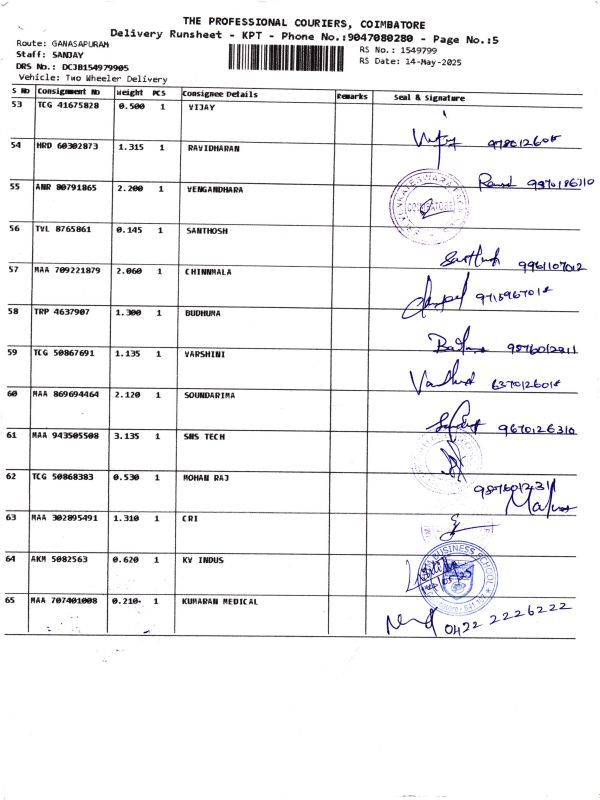 THE PROFESSIONAL COURIERS, COIMBATORE
Delivery Runsheet - KPT - Phone No.:9047080280 - Page No.:5
Route: GANASAPURAM
RS No.: 1549799
Staff: SANJAY
RS Date: 14-May-2025
DRS No.: DCJB154979905
Vehicle: Two Wheeler Delivery
S No Consignment No Weight PCS Consignee Details Remarks Seal & Signature
53 TCG 41675828 0.500 1 VIJAY
54 HRD 60302873 1.315 1 RAVIDHARAN
55 ANR 80791865 2.200 1 VENGANDHARA
COIMBATORE
56 TVL 8765861 0.145 1 SANTHOSH
9961107012
57 MAA 709221879 2.060 1 CHINNMALA
58 TRP 4637907 1.300 1 BUDHUMA
59 TCG 50867691 1.135 1 VARSHINI
60 MAA 869694464 2.120 1 SOUNDARIMA
9670126310
61 MAA 943505508 3.135 1 SNS TECH
62 TCG 50868383 0.530 1 MOHAN RAJ
63 MAA 302895491 1.310 1 CRI
64 AKM 5082563 0.620 1 KV INDUS
BUSINESS SCHOOL
65 MAA 707401008 0.210 1 KUMARAN MEDICAL
0422 2226222